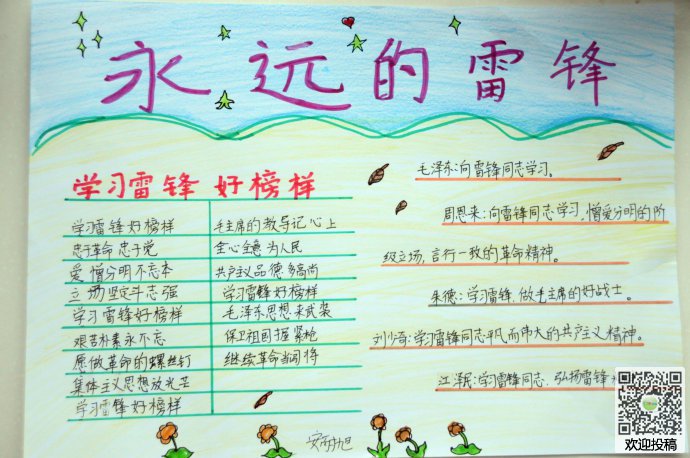 永远的雷锋
学习雷锋 好榜样
学习雷锋好榜样
忠于革命忠于党
爱憎分明不忘本
立场坚定斗志强
学习雷锋好榜样
艰苦朴素永不忘
愿做革命的螺丝钉
集体主义思想放光芒
学习雷锋好榜样
毛主席的教导记心上
全心全意为人民
共产主义品德多高尚
学习雷锋好榜样
毛泽东思想来武装
保卫祖国握紧枪
继续革命当闯将
毛泽东:向雷锋同志学习。
周恩来:向雷锋同志学习,憎爱分明的阶
级立场,言行一致的革命精神。
朱德:学习雷锋,做毛主席的好战士。
刘少奇:学习雷锋同志平凡而伟大的共产主义精神。
江泽民:学习雷锋同志,弘扬雷锋
欢迎投稿